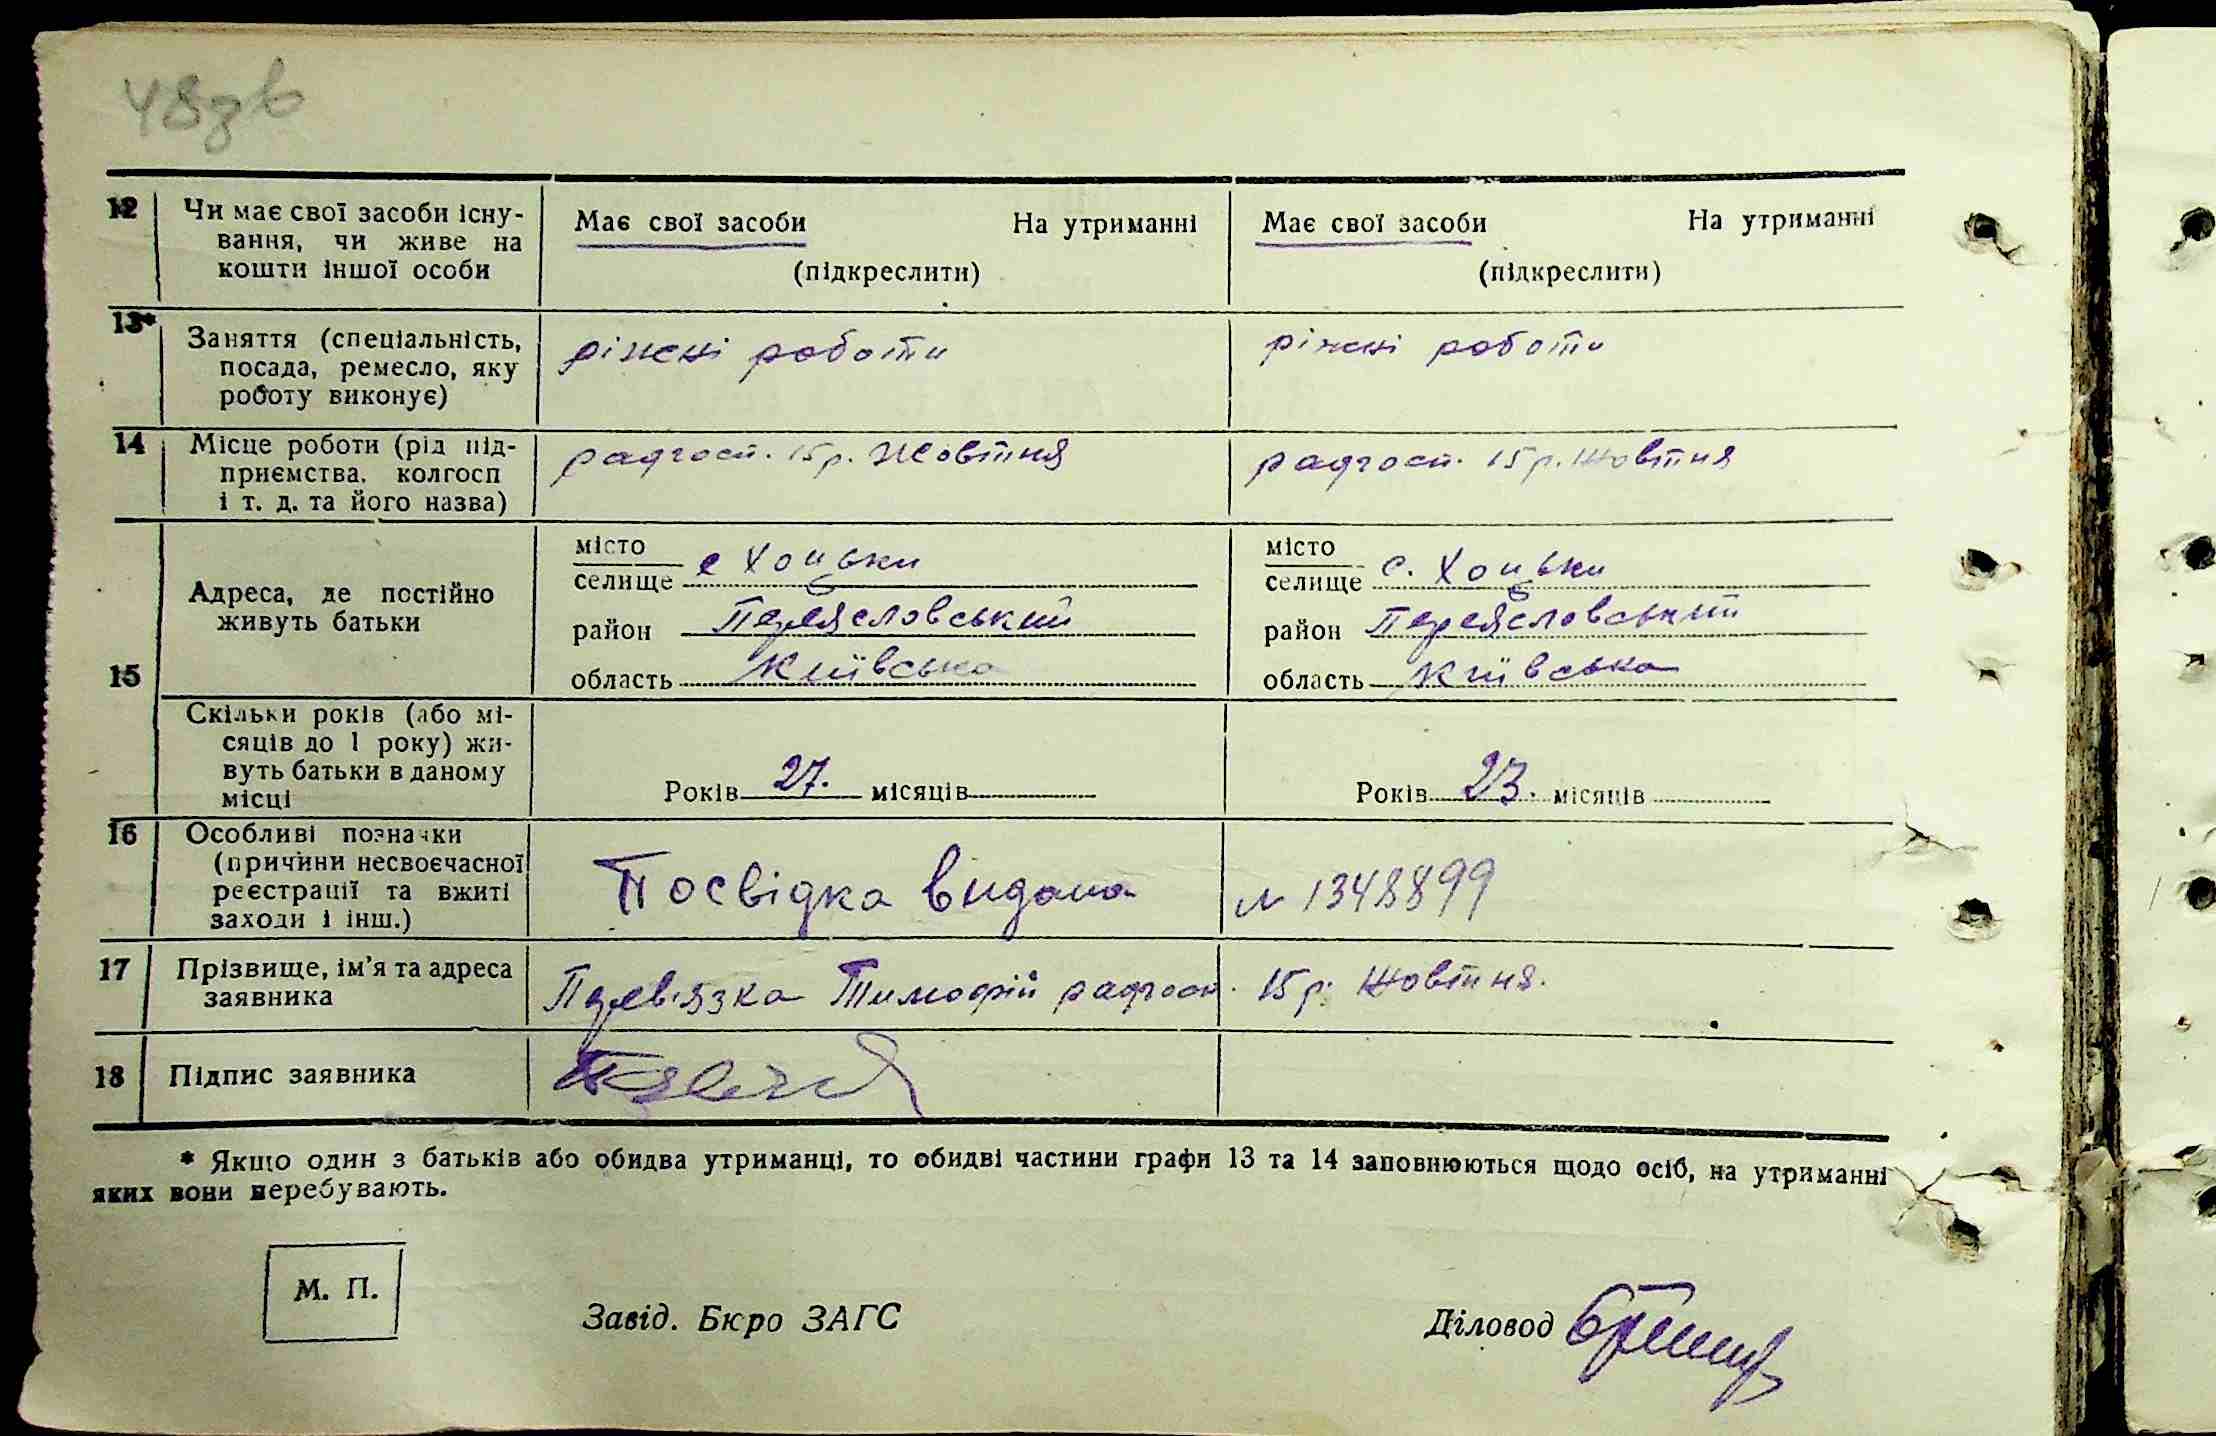 48зв
12 Чи має свої засоби існу- Має свої засоби На утриманні Має свої засоби На утриманні
вання, чи живе на
кошти іншої особи (підкреслити) (підкреслити)
13* Заняття (спеціальність, ріжні роботи ріжні роботи
посада, ремесло, яку
роботу виконує)
14 Місце роботи (рід під- радгосп. 15 р. Жовтня радгосп. 15 р. Жовтня
приємства, колгосп
і т. д. та його назва)
15 Адреса, де постійно
живуть батьки
місто
селище с Хоцьки
район Переясловський
область Київська
місто
селище с. Хоцьки
район Переясловський
область Київська
Скільки років (або мі-
сяців до 1 року) жи-
вуть батьки в даному
місці
Років 27. місяців
Років 23. місяців
16 Особливі позначки
(причини несвоєчасної
реєстрації та вжиті
заходи і інш.)
Посвідка видана № 1348899
17 Прізвище, ім'я та адреса
заявника
Перевіязка Тимофій радгосп. 15 р. Жовтня.
18 Підпис заявника
* Якщо один з батьків або обидва утриманці, то обидві частини графи 13 та 14 заповнюються щодо осіб, на утриманні
яких вони перебувають.
М. П.
Завід. Бюро ЗАГС Діловод